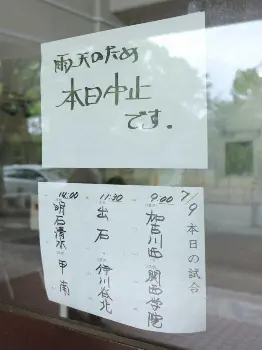 雨天のため
本日中止
です.
7/9 本日の試合
9:00 加古川西 - 関西学院
11:30 出石 - 伊川谷北
14:00 明石清水 - 甲南